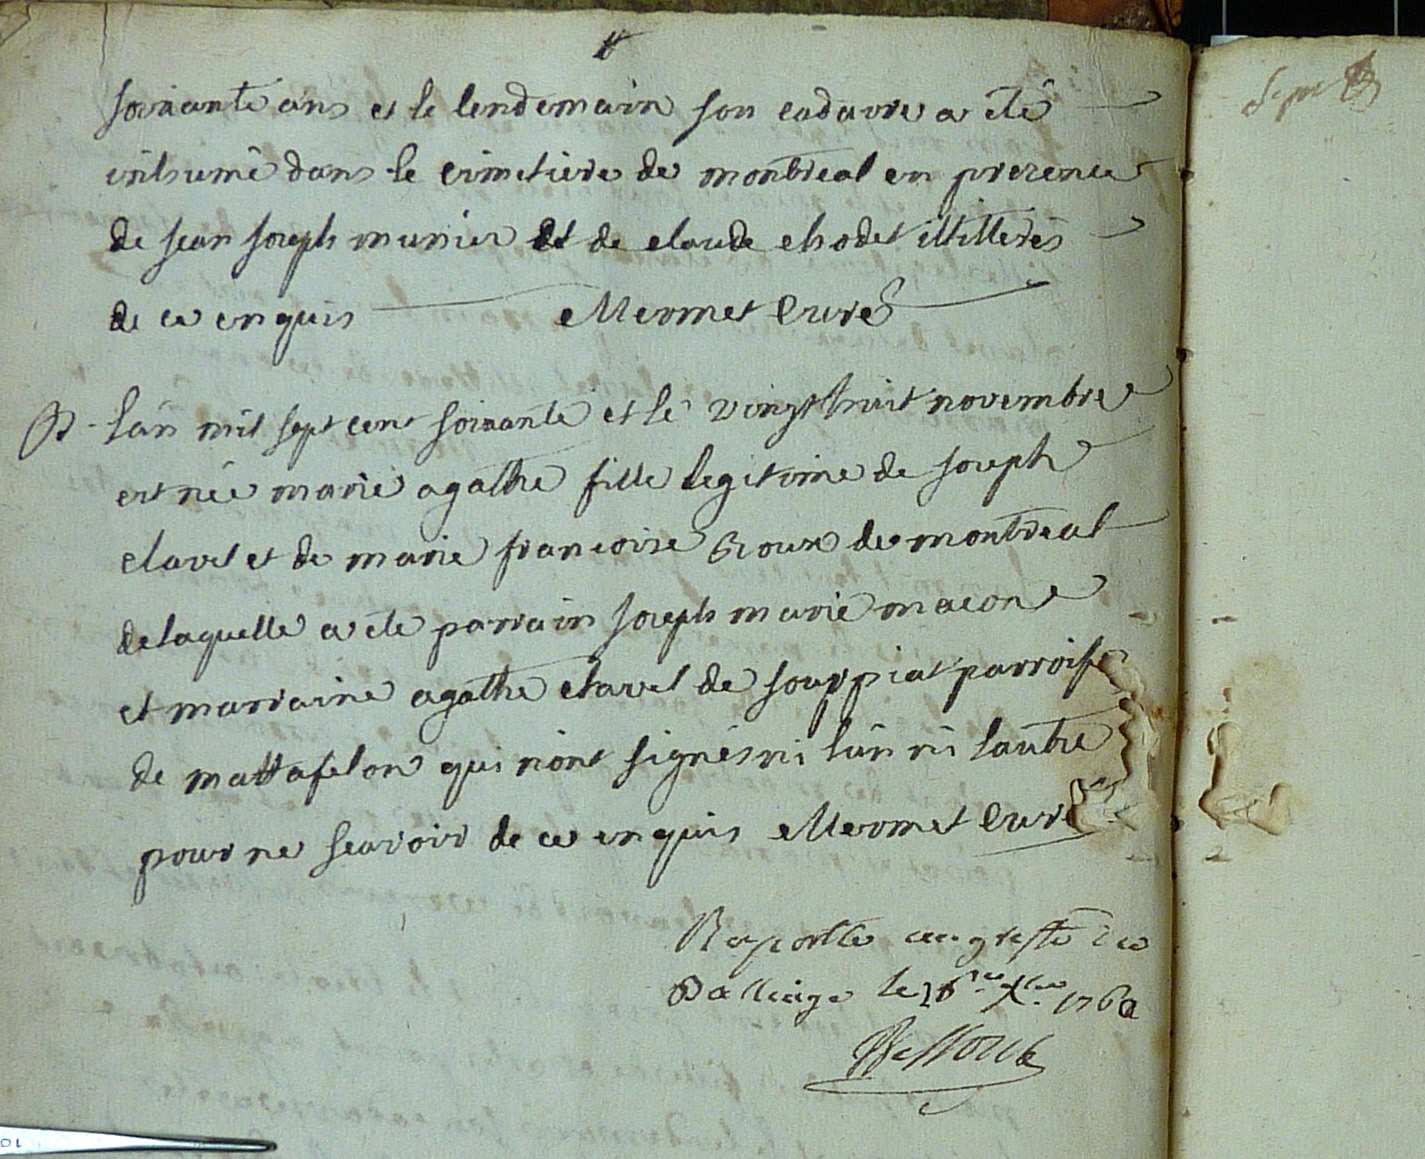 soixante ans et le lendemain son cadavre a été
inhumé dans le cimetiere de montreal en prezence
de jean joseph munier et de claude chodet illitterés
de ce enquis Mermet Curé
B. l'an mil sept cent soixante et le vingt huit novembre
est née marie agathe fille legitime de joseph
clavel et de marie francoise Roux de montreal
de laquelle a été parrain joseph marie macon
et marraine agathe clavel de souppiat parroisse
de mattafelon qui n'ont signés ni l'un ni l'autre
pour ne scavoir de ce enquis Mermet Curé
Raporté au greffe de ce
Balliage le Xbre 1760